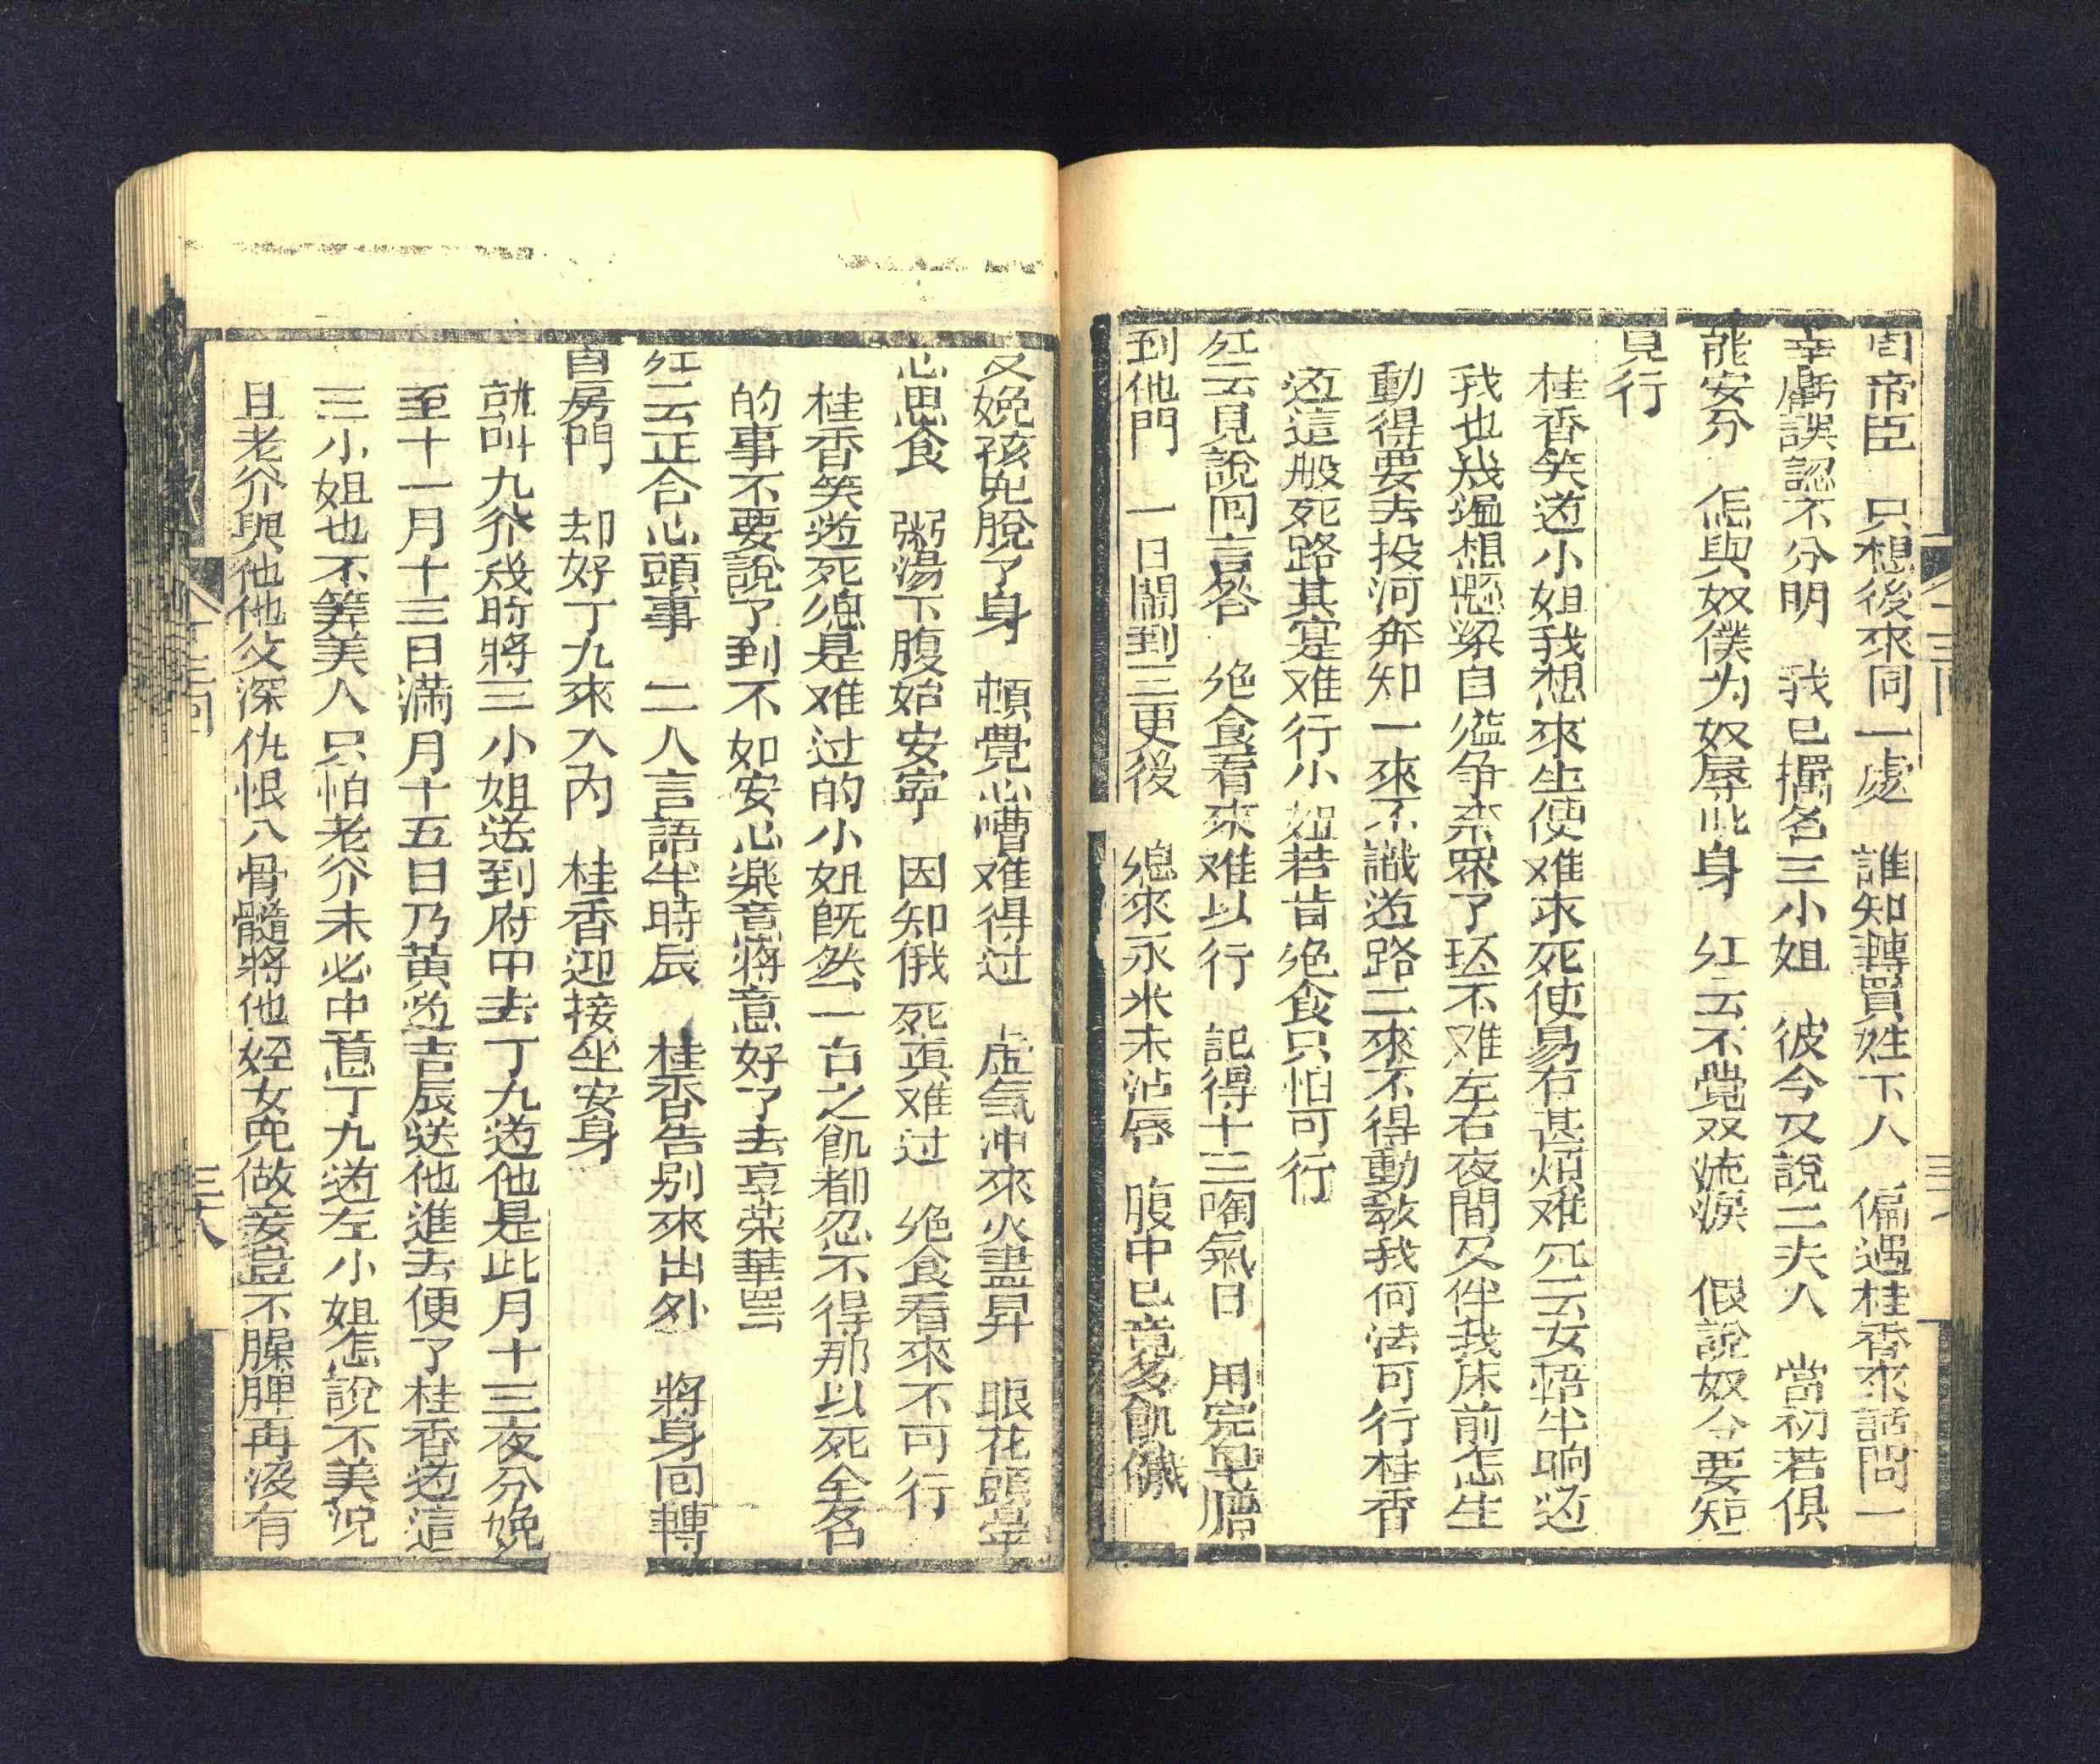 周帝臣　只想後來同一處　誰知轉買姓下人　偏遇桂香來話問一
幸虧誤認不分明　我已擺名三小姐　彼今又說二夫人　當初若俱
能安分　怎與奴僕为奴辱此身　红云不覺双流淚　假說奴今要短
見行
桂香笑道小姐我想來生便难求死使易有甚煩难红云女語半晌道
我也幾遍想懸梁自縊争柰眾了环不难左右夜間又伴我床前怎生
動得要去投河奔知一來不識道路二來不得動敎我何法可行桂香
道這般死路其寔难行小姐若肯绝食只怕可行
红云見說回言答　绝食看來难以行　記得十三啕氣日　用完早膳
到他門　一日閙到三更後　緫來永米未沾唇　腹中已竟多飢饿
又娩孩兜脫了身　頓覺心嘈难得过　上虛氣冲來火盡昇　眼花頭晕
心思食　粥湯下腹始安寧　因知俄死真难过　绝食看來不可行
桂香笑道死緫是难过的小姐既然一台之飢都忍不得那以死全名
的事不要說了到不如安心樂意將意好了去享荣華罢
红云正合心頭事　二人言語半時辰　桂香告别來出外　將身回轉
自房門　却好丁九來入內　桂香迎接坐安身
就叫九爷幾時將三小姐送到府中去丁九道他是此月十三夜分娩
至十一月十三日滿月十五日乃黃道吉辰送他進去便了桂香道這
三小姐也不筭美人只怕老爷未必中意丁九道左小姐怎說不美况
且老爷與他他父深仇恨入骨髓將他姪女兜做妾豈不臊脾再沒有
十三回
三十八